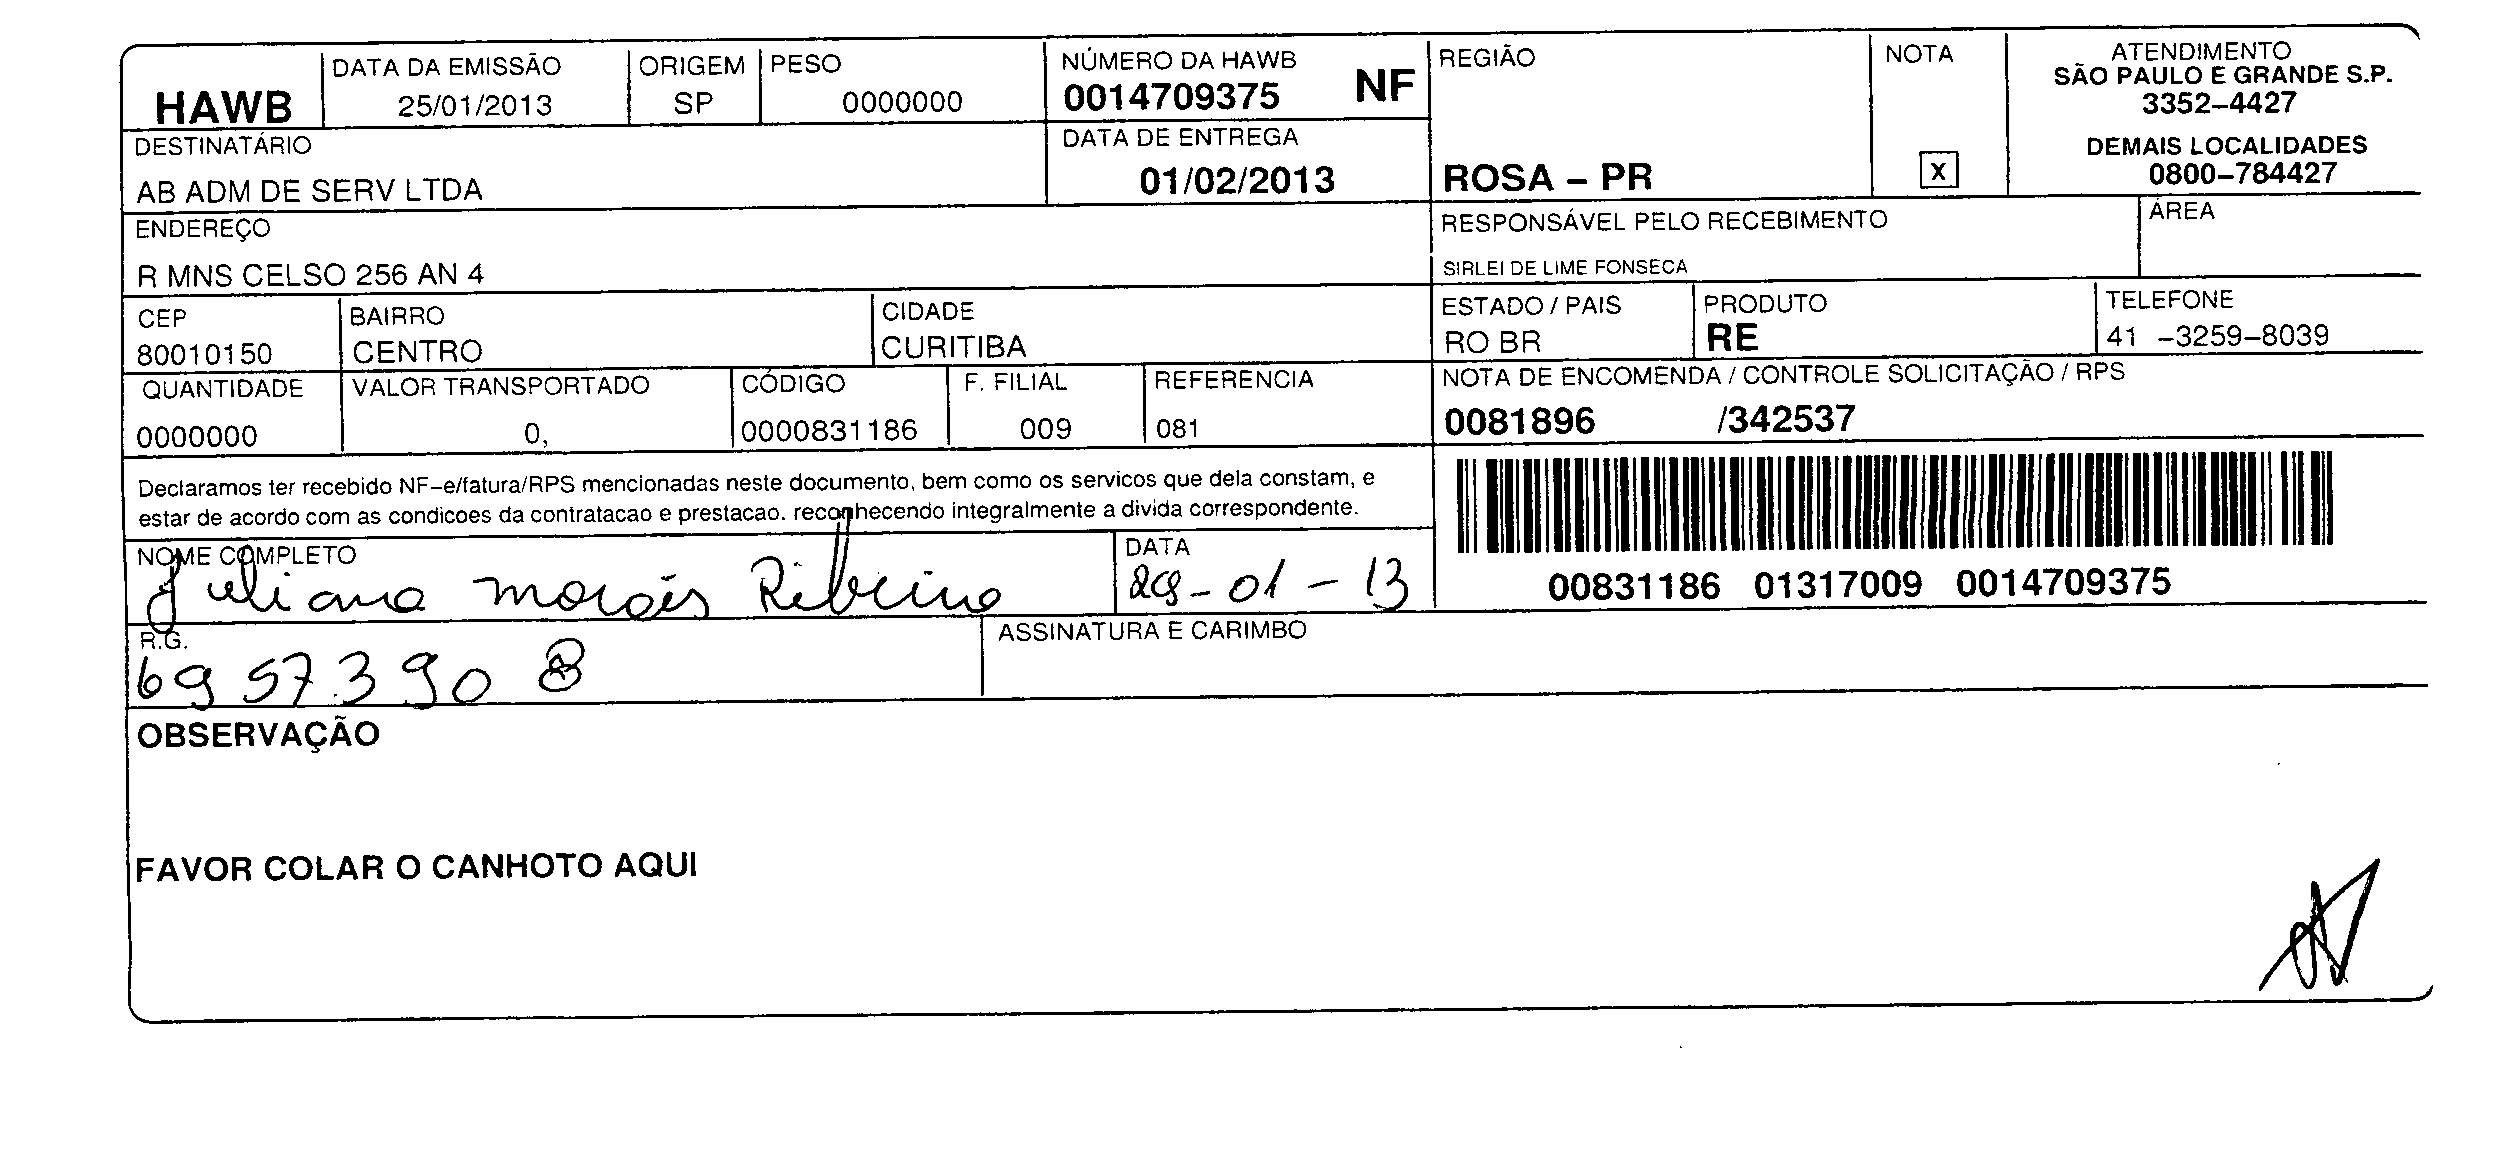 HAWB
DATA DA EMISSÃO
25/01/2013
ORIGEM
SP
PESO
0000000
NÚMERO DA HAWB
0014709375 NF
REGIÃO
ROSA – PR
NOTA
X
ATENDIMENTO
SÃO PAULO E GRANDE S.P.
3352–4427
DEMAIS LOCALIDADES
0800–784427
DESTINATÁRIO
AB ADM DE SERV LTDA
DATA DE ENTREGA
01/02/2013
ENDEREÇO
R MNS CELSO 256 AN 4
RESPONSÁVEL PELO RECEBIMENTO
SIRLEI DE LIME FONSECA
ÁREA
CEP
80010150
BAIRRO
CENTRO
CIDADE
CURITIBA
ESTADO / PAIS
RO BR
PRODUTO
RE
TELEFONE
41 –3259–8039
QUANTIDADE
0000000
VALOR TRANSPORTADO
0,
CÓDIGO
0000831186
F. FILIAL
009
REFERENCIA
081
NOTA DE ENCOMENDA / CONTROLE SOLICITAÇÃO / RPS
0081896 /342537
Declaramos ter recebido NF–e/fatura/RPS mencionadas neste documento, bem como os servicos que dela constam, e
estar de acordo com as condicoes da contratacao e prestacao. reconhecendo integralmente a divida correspondente.
00831186 01317009 0014709375
NOME COMPLETO
Juliana morais Ribeiro
DATA
29-01-13
R.G.
6957390 8
ASSINATURA E CARIMBO
OBSERVAÇÃO
FAVOR COLAR O CANHOTO AQUI